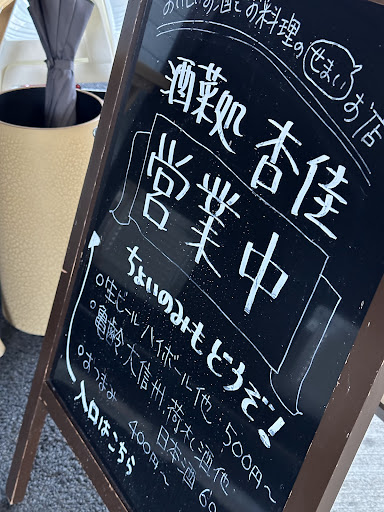 おいしいお酒とお料理の せまい お店
酒菜処 杏佳
営業中
ちょいのみもどうぞ!
○生ビール ハイボール他 500円~
○亀齢、大信州、荷札酒他
日本酒 60
○おつまみ 400円~
入口はこちら